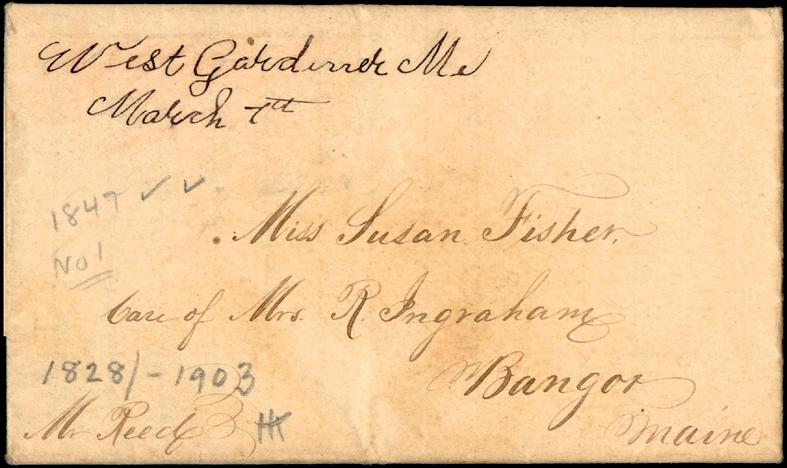 West Gardiner Me
March 7th
1847 ✓ ✓
No 1
Miss Susan Fisher.
Care of Mrs. R. Ingraham
Bangor
Maine
1828/-1903
Mr Reed